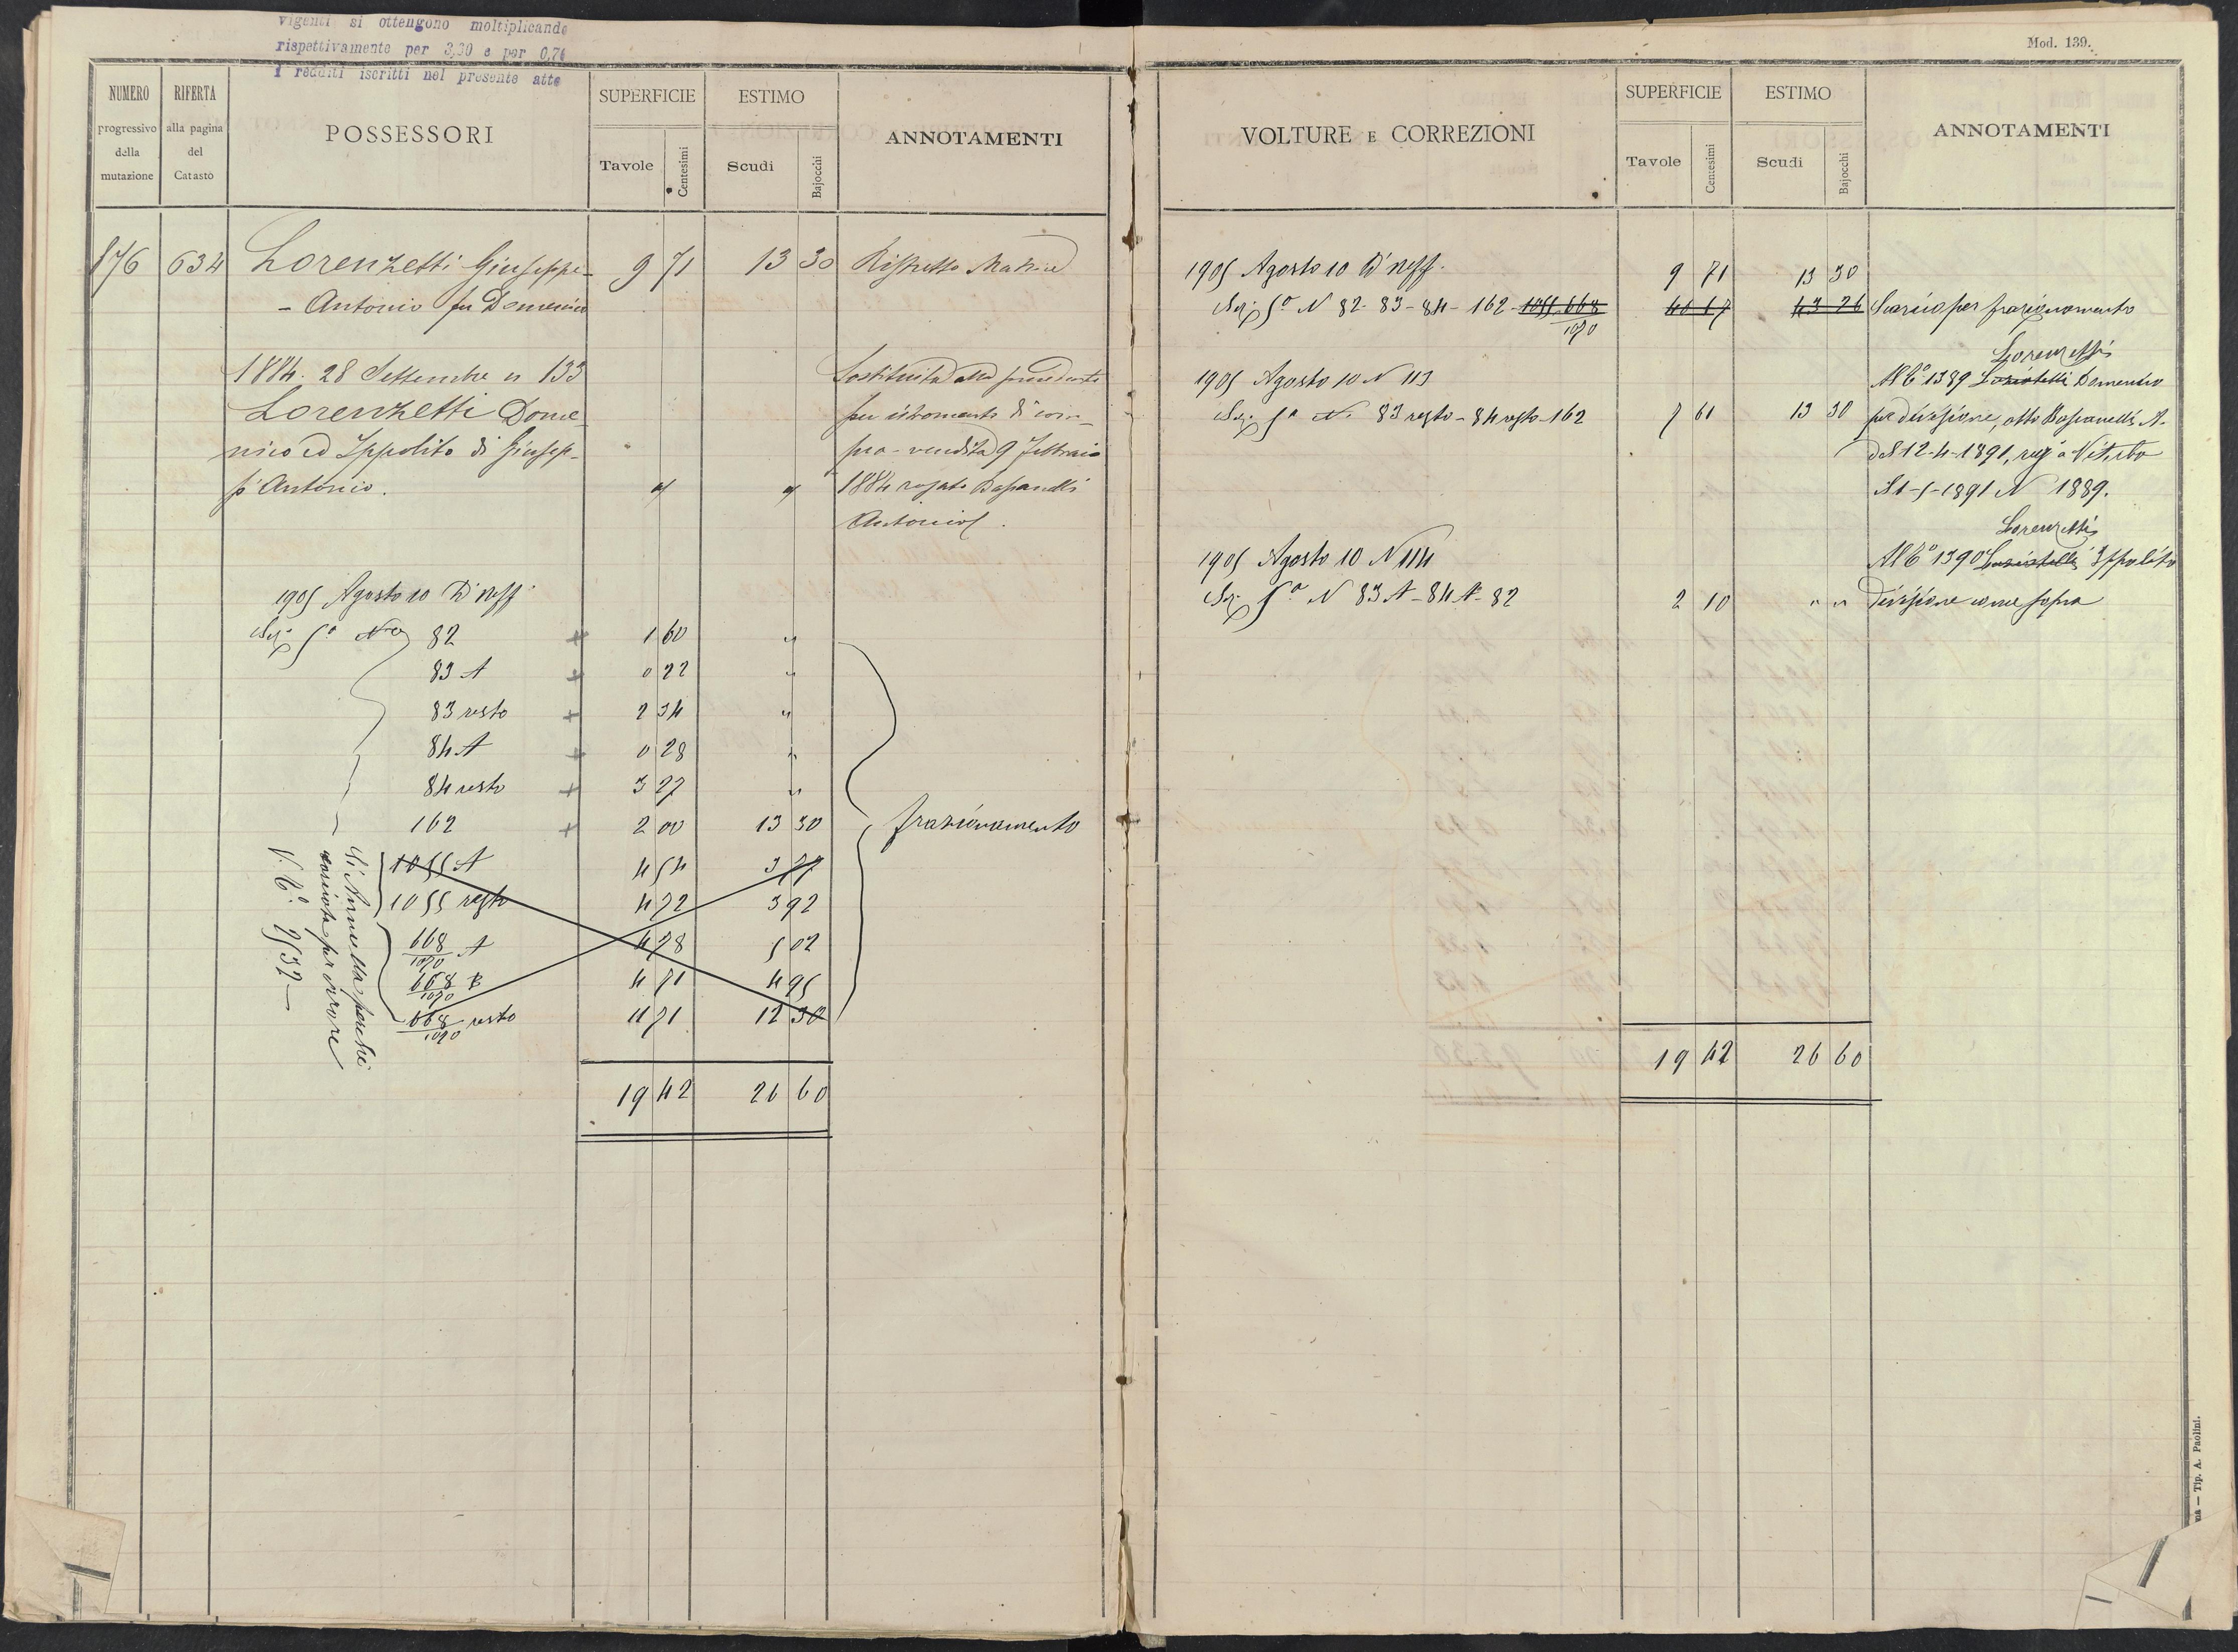 vigenti si ottengono moltiplicando
rispettivamente per 3,30 e per 0,76
i redditi iscritti nel presente atto
NUMERO
progressivo
della
mutazione
RIFERTA
alla pagina
del
Catasto
POSSESSORI
SUPERFICIE
Tavole
Centesimi
ESTIMO
Scudi
Bajocchi
ANNOTAMENTI
876 634 Lorenzetti Giuseppe 9 71 13 30 Ristretto Matrice
- Antonio fu Domenico
1884. 28 Settembre n 133 Sostituita alla precedente
Lorenzetti Dome- per istromento di com-
nico ed Ippolito di Giusep- pra-vendita 9 Febbraio
pe Antonio. " " 1884 rogato Bapanelli
Antonio
1905 Agosto 10 D'Uff.
Sez. 5a No 82 + 1 60 "
83 A + 0 22 "
83 resto + 2 34 "
84 A + 0 28 "
84 resto + 3 27 "
162 + 2 00 13 30 frazionamento
1055 A 4 54 3 77
1055 resto 4 72 3 92
668/1090 A 4 78 5 02
668/1090 B 4 71 4 95
668/1090 resto 11 71 12 30
Si Annulla perchè
per errore
V. C.o
19 42 26 60
Mod. 139.
VOLTURE E CORREZIONI
SUPERFICIE
Tavole
Centesimi
ESTIMO
Scudi
Bajocchi
ANNOTAMENTI
1905 Agosto 10 D'Uff. 9 71 13 30
Sez. 5a N 82-83-84-162-1055 668/1090 43 26 Scarico per frazionamento
Lorenzetti
1905 Agosto 10 N 113 Al C.o 1389 Domenico
Sez. 5a N. 83 resto-84 resto-162 7 61 13 30 per divisione, atto Bapanelli A.
del 12-4-1891, reg a Viterbo
il 1-5-1891 N 1889.
Lorenzetti
1905 Agosto 10 N 114 Al C.o 1390 Ippolito
Sez. 5a N 83 A-84 A-82 2 10 " " Divisione come sopra
19 42 26 60
— Tip. A. Paolini.